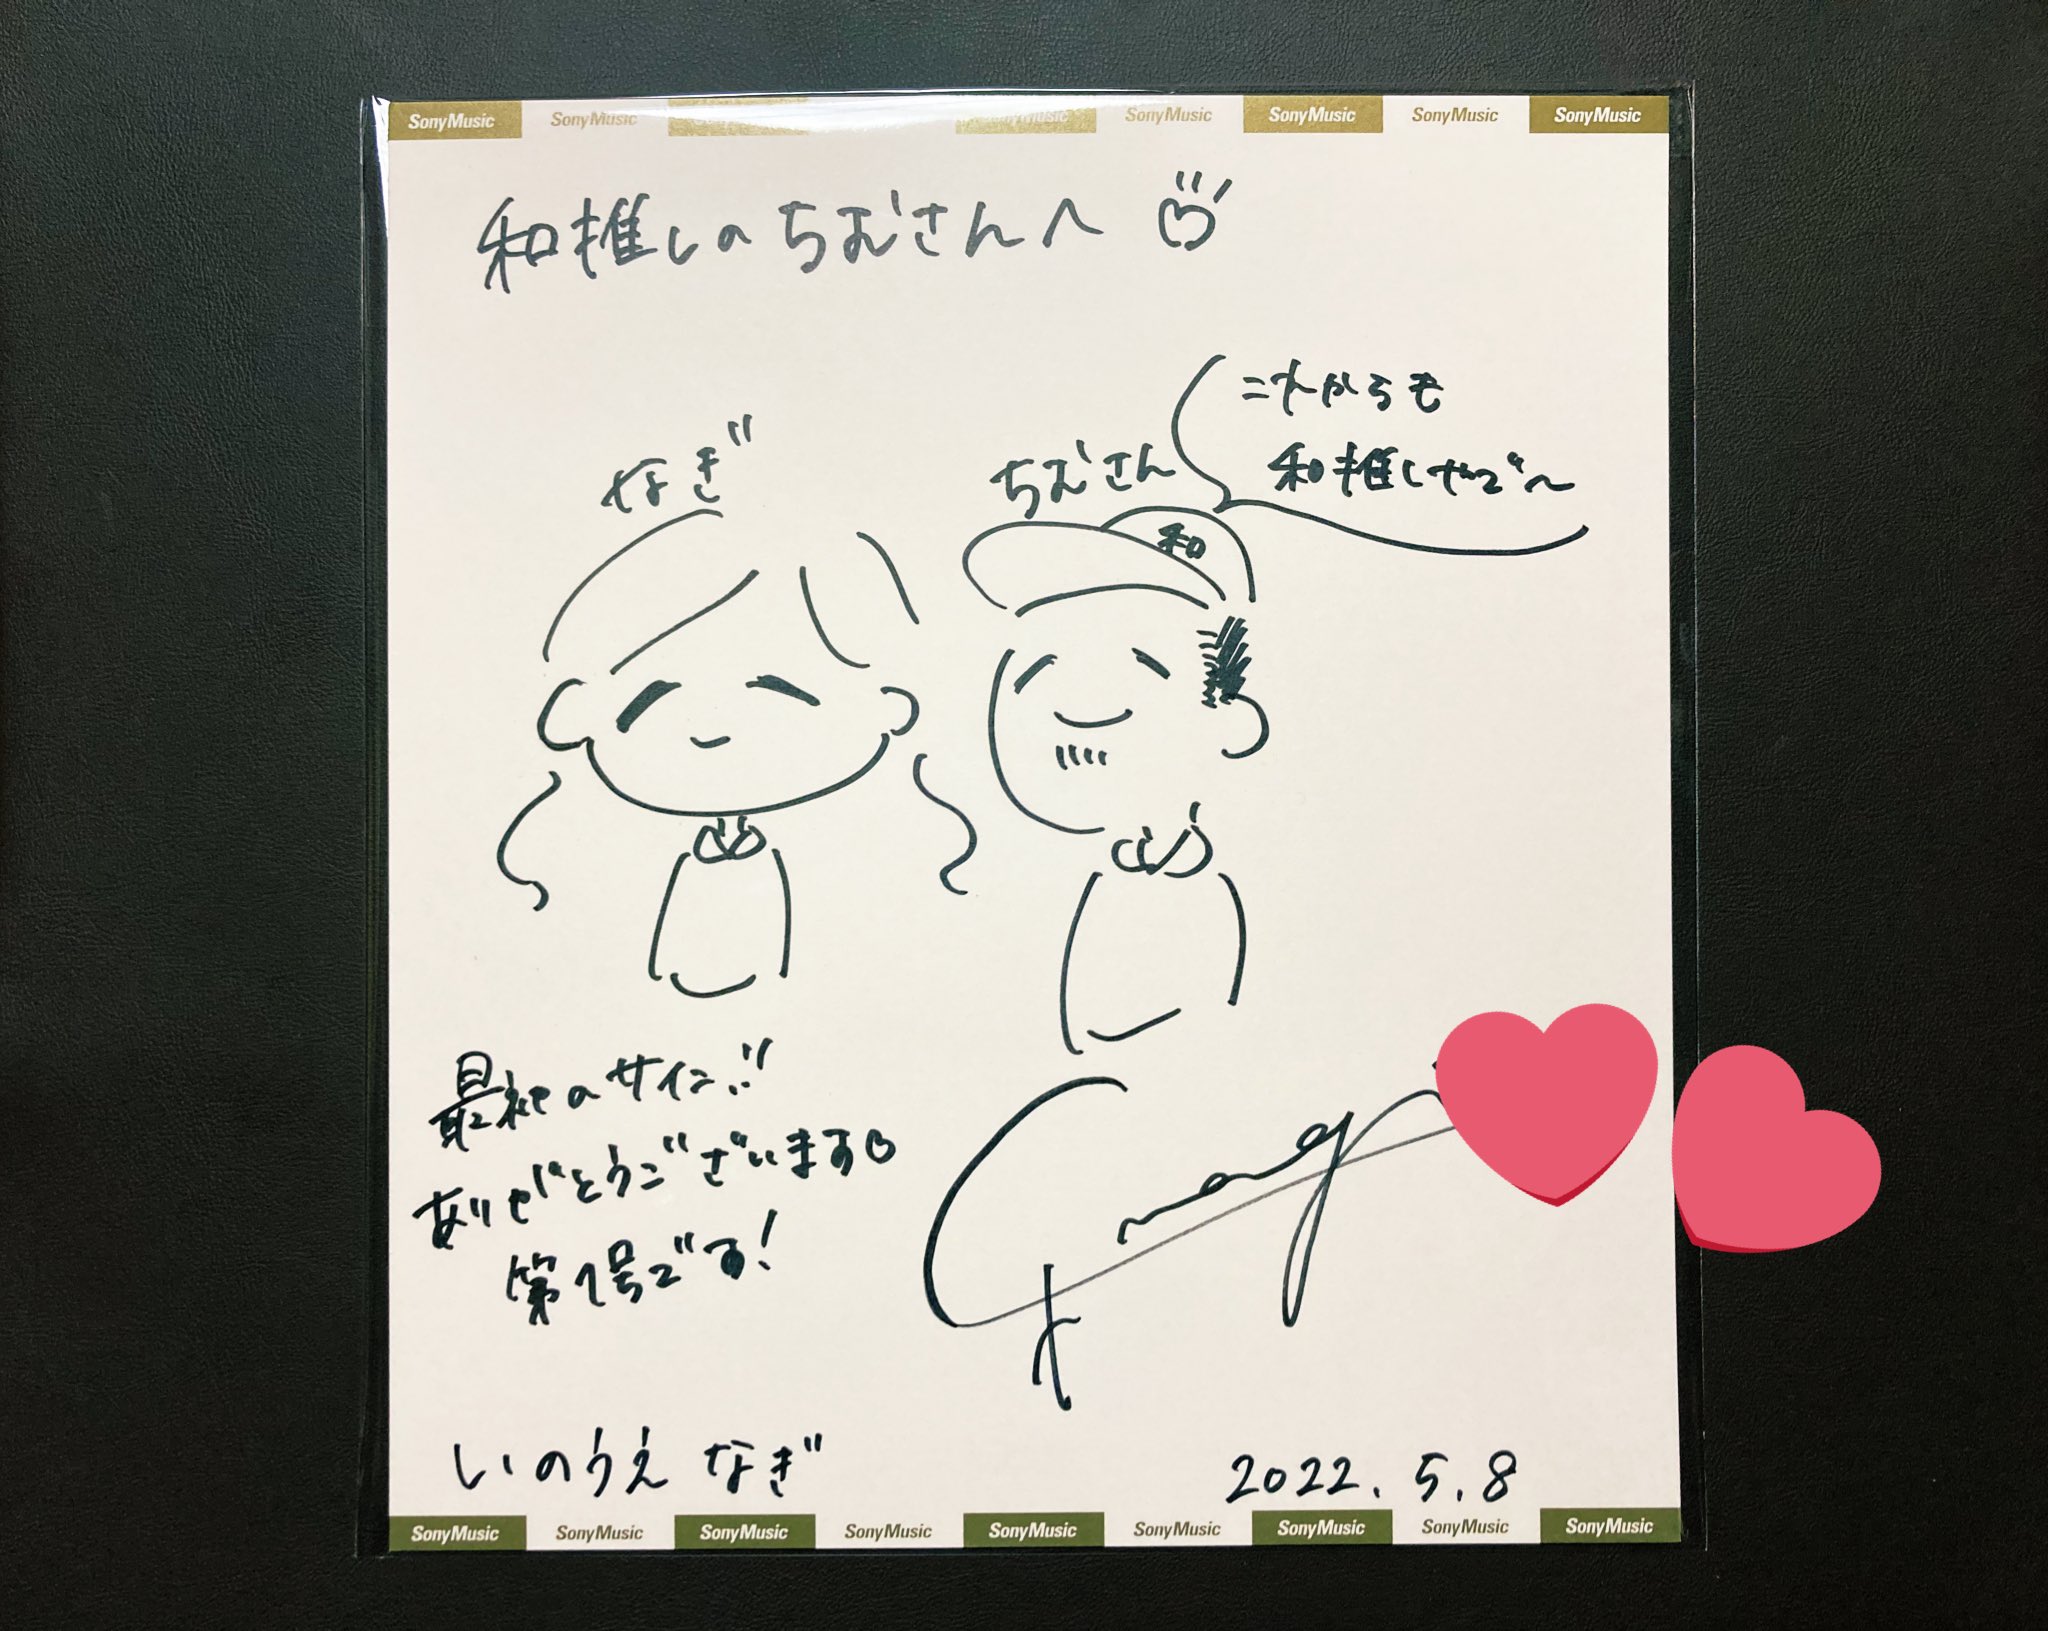 SonyMusic SonyMusic SonyMusic SonyMusic SonyMusic SonyMusic SonyMusic
和推しのちむさんへ
なぎ
ちむさん
これからも
和推しやで〜
和
最初のサイン!!
ありがとうございます♡
第1号です!
いのうえ なぎ
2022.5.8
SonyMusic SonyMusic SonyMusic SonyMusic SonyMusic SonyMusic SonyMusic SonyMusic SonyMusic